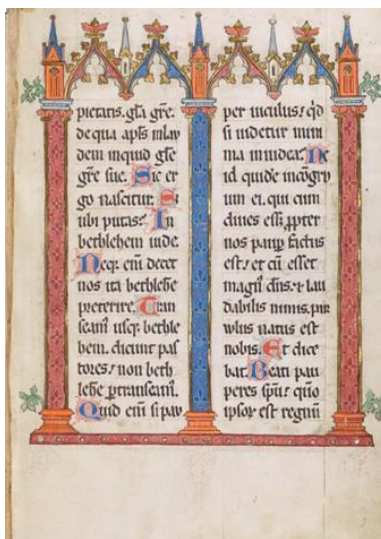 pietatis. gła gr̄e.
de qua apłs in lau
dem inquid głe
gr̄e sue. Sic er
go nascitur. S;
ubi putas? In
bethlehem iude.
Neq; enī decet
nos ita bethleħe
preterire. Tran
seam̄ usq; bethle
hem. dicunt pas
tores? non beth
leħe ꝑtranseam̄.
Quid enī si pau
per uiculus? qđ
si uidetur mini
ma in iudea? Ne
id quidē incōgru
um ei. qui cum
diues eēt ꝓpter
nos paupꝭ factus
est? et cū esset
magn̄ dn̄s. ⁊ lau
dabilis nimis. par
uulus natus est
nobis. Et dice
bat. Beati pau
peres spū? qm̄o
ipsoꝝ est regnū